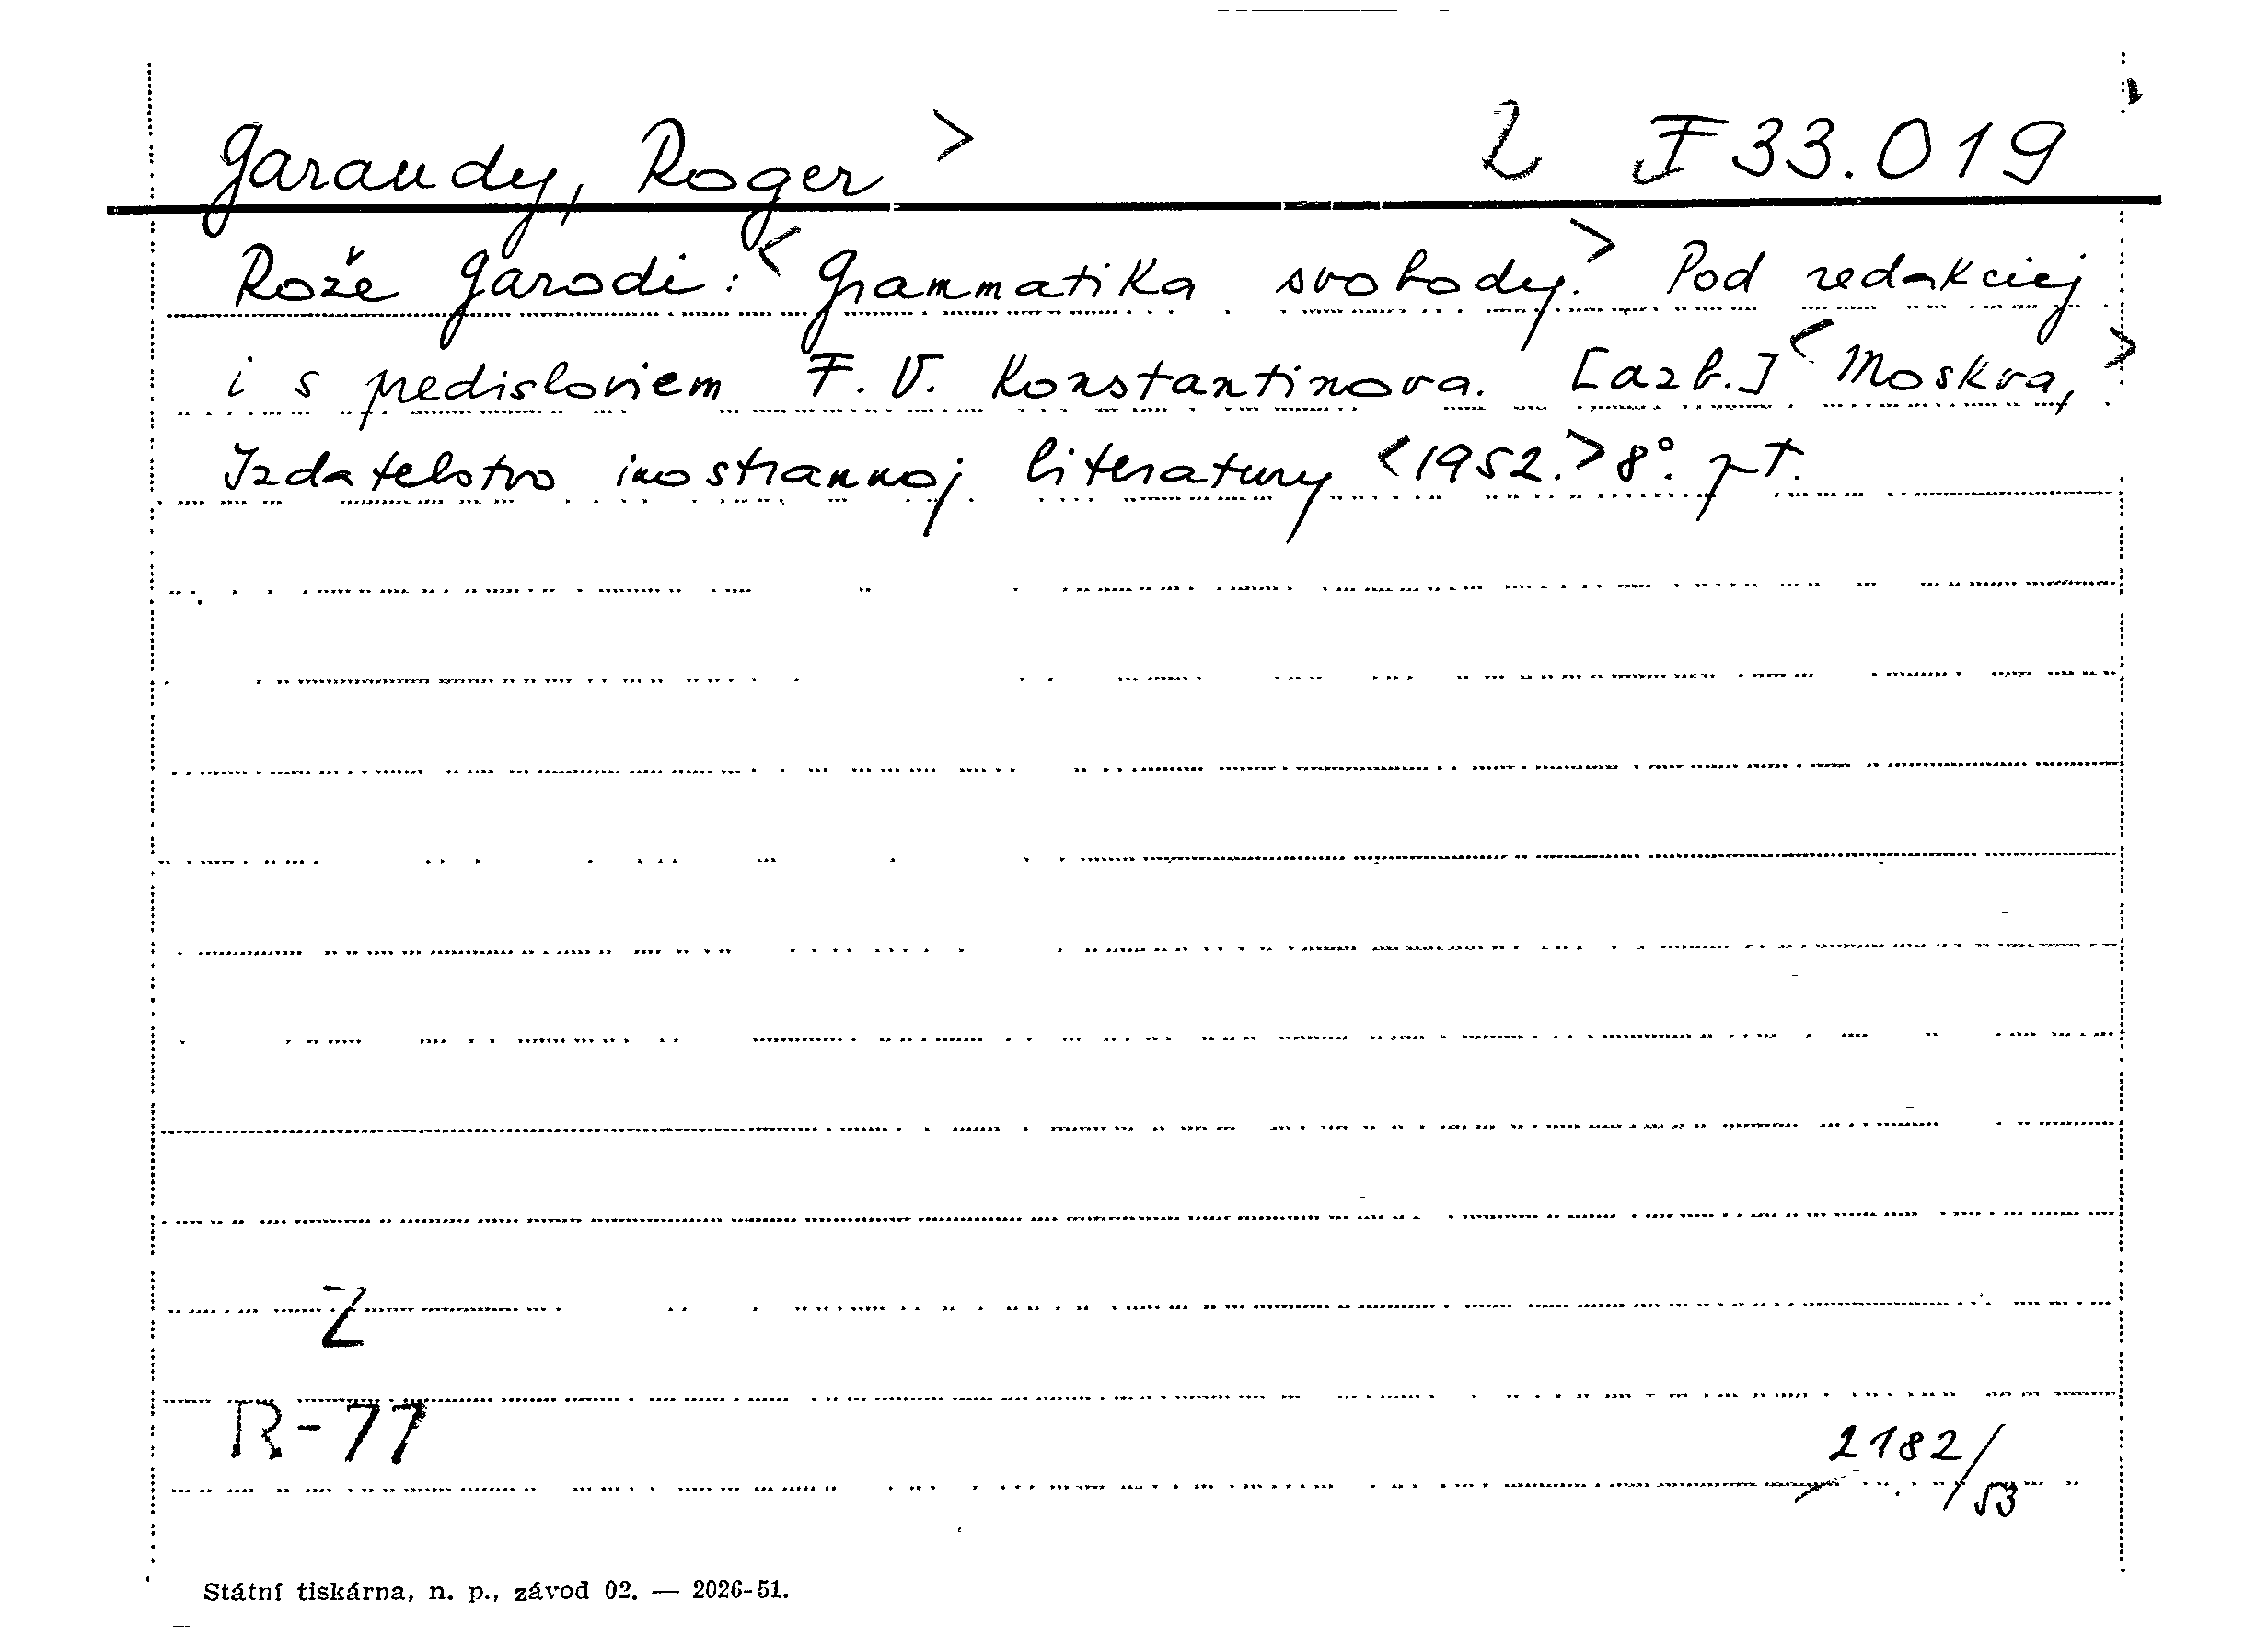 Garaudy, Roger > 2 I 33.019
Rože Garodi: <Grammatika svobody.> Pod redakciej
i s predisloviem F. V. Konstantinova. [azb.] <Moskva,>
Izdatelstvo inostrannoj literatury <1952.> 8°.
Z
R-77
2182/53
Státní tiskárna, n. p., závod 02. — 2026-51.